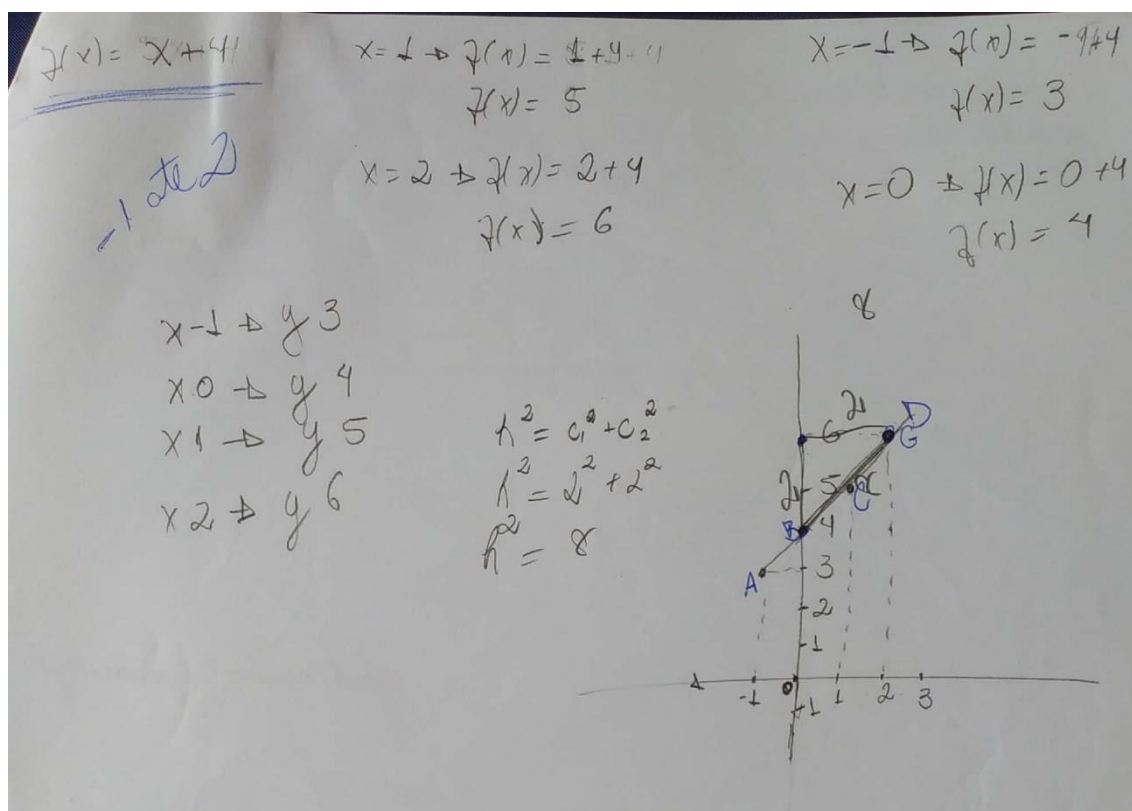 f(x) = x+4
x=1 → f(x) = 1+4
f(x) = 5
x=-1 → f(x) = -1+4
f(x) = 3
-1 ate 2
x=2 → f(x) = 2+4
f(x) = 6
x=0 → f(x) = 0+4
f(x) = 4
x-1 → y 3
x0 → y 4
x1 → y 5
x2 → y 6
h² = c₁² + c₂²
h² = 2² + 2²
h² = 8
8
2 D
6 G
2 5 C
B 4
A 3
2
1
-1 0 1 2 3
-1